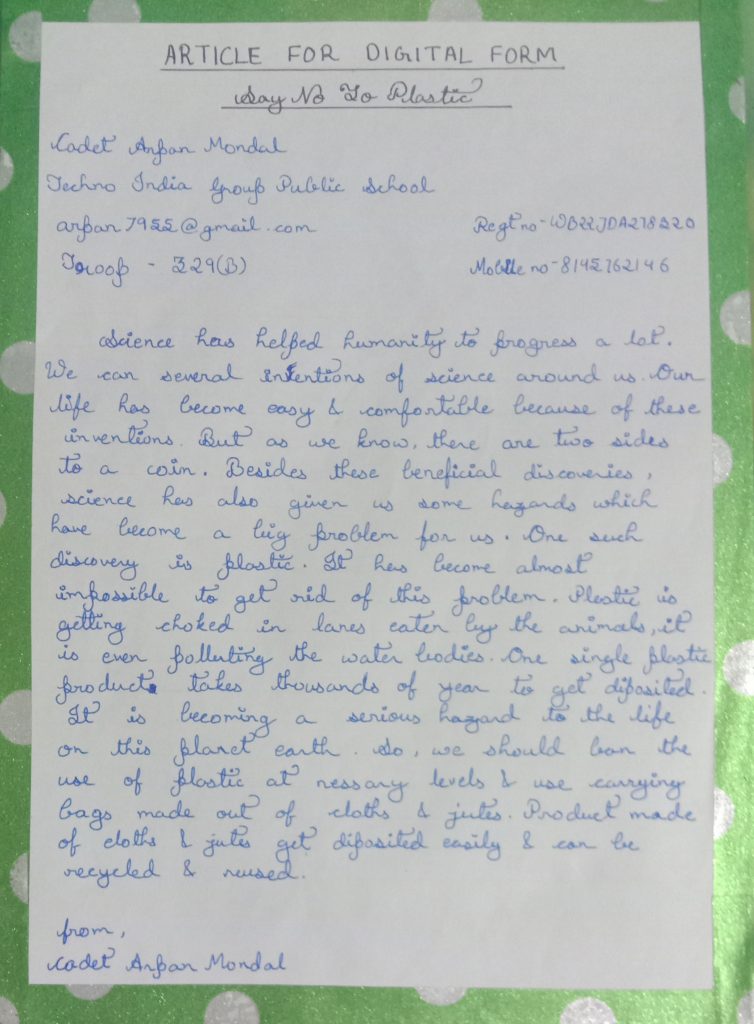 ARTICLE FOR DIGITAL FORM
Say No To Plastic
Cadet Arpan Mondal
Techno India Group Public School
arpan7955@gmail.com Regt no - WB22JDA278220
Troop - 329(B) Mobile no - 8145762146
Science has helped humanity to progress a lot.
We can several inventions of science around us. Our
life has become easy & comfortable because of these
inventions. But as we know, there are two sides
to a coin. Besides these beneficial discoveries,
science has also given us some hazards which
have become a big problem for us. One such
discovery is plastic. It has become almost
impossible to get rid of this problem. Plastic is
getting choked in lanes eaten by the animals, it
is even polluting the water bodies. One single plastic
product takes thousands of year to get diposited.
It is becoming a serious hazard to the life
on this planet earth. So, we should ban the
use of plastic at nessary levels & use carrying
bags made out of cloths & jutes. Product made
of cloths & jutes get diposited easily & can be
recycled & reused.
from,
Cadet Arpan Mondal